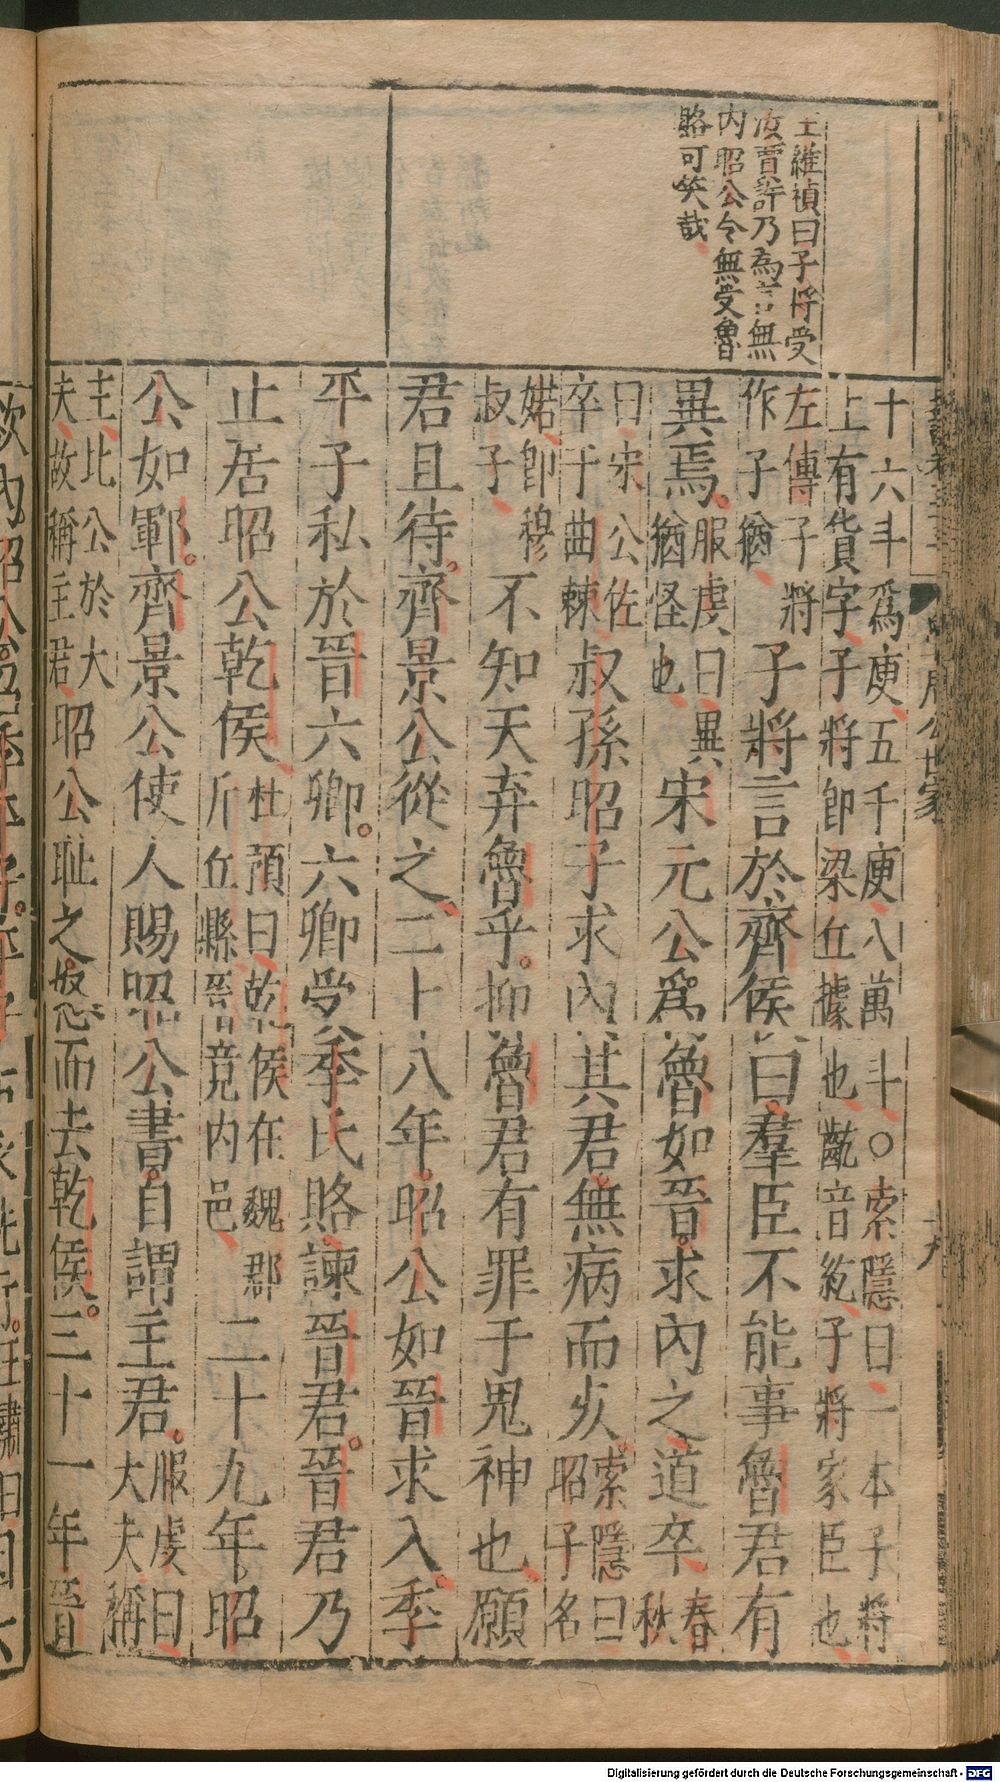 王維禎曰子將受
汝賈許乃為言無
內昭公今無受魯
賂可笑哉
十六斗爲庾五千庾八萬斗○索隱曰一本子將
上有貨字子將卽梁丘據也齕音紇子將家臣也
左傳子將
作子猶
子將言於齊侯曰羣臣不能事魯君有
異焉
服虔曰異
猶怪也
宋元公爲魯如晉求內之道卒
春
秋
曰宋公佐
卒于曲棘
叔孫昭子求內其君無病而死
索隱曰
昭子名
婼卽穆
叔子
不知天弃魯乎抑魯君有罪于鬼神也願
君且待齊景公從之二十八年昭公如晉求入季
平子私於晉六卿六卿受季氏賂諫晉君晉君乃
止居昭公乾侯
杜預曰乾侯在魏郡
斤丘縣晉竟內邑
二十九年昭
公如鄆齊景公使人賜昭公書自謂主君
服虔曰
大夫稱
主比公於大
夫故稱主君
昭公恥之怒而去乾侯三十一年晉
Digitalisierung gefördert durch die Deutsche Forschungsgemeinschaft - DFG